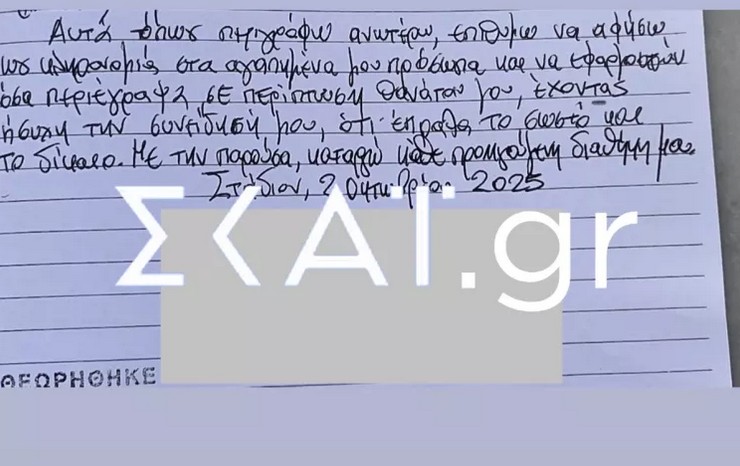 Αυτά όπως περιγράφω ανωτέρω, επιθυμώ να αφήσω
ως κληρονομιάς στα αγαπημένα μου πρόσωπα και να εφαρμοστούν
όσα περιέγραψα, σε περίπτωση θανάτου μου, έχοντας
ήσυχη την συνείδησή μου, ότι έπραξα το σωστό και
το δίκαιο. Με την παρούσα, καταργώ κάθε προηγούμενη διαθήκη μου.
Στάδιον, 2 Οκτωβρίου 2025
ΣΚΑΪ.gr
ΘΕΩΡΗΘΗΚΕ